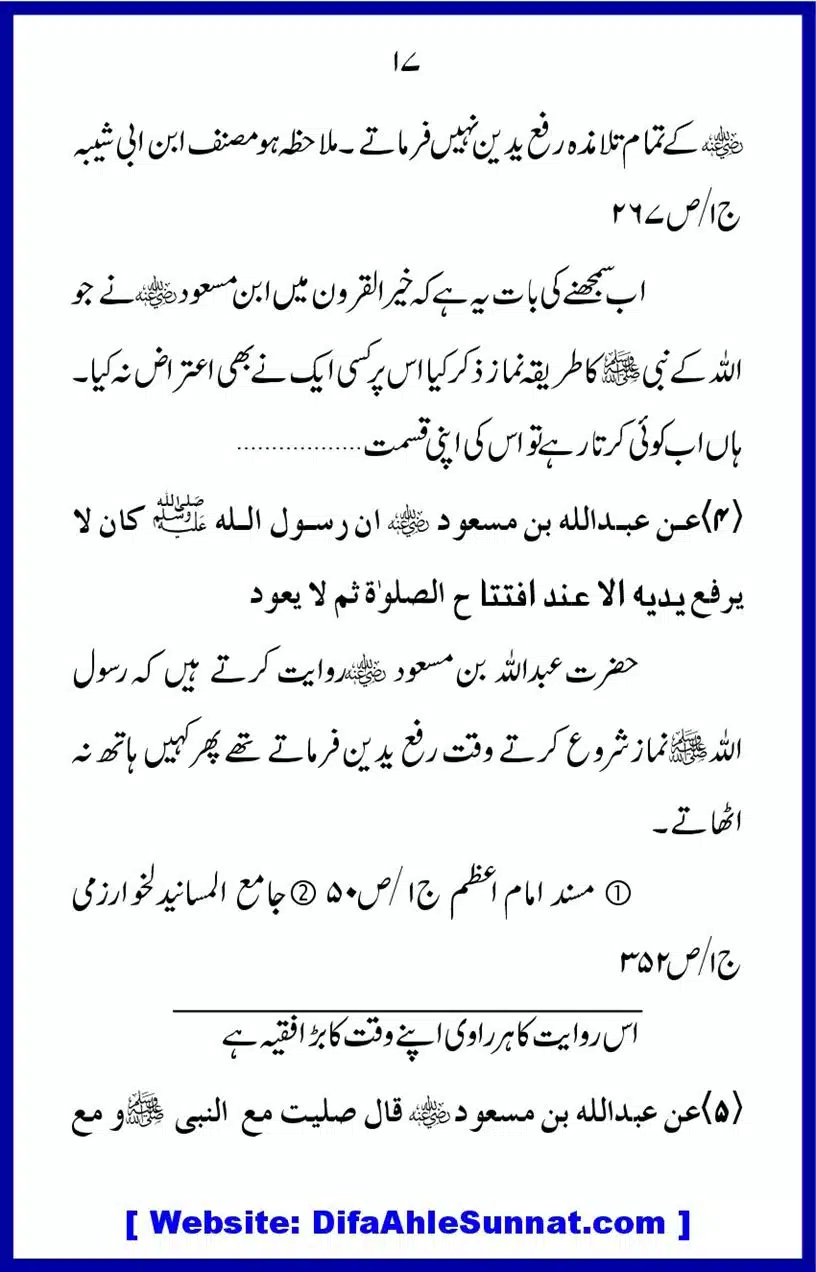 ۱۷
رضی اللہ عنہ کے تمام تلامذہ رفع یدین نہیں فرماتے ۔ ملاحظہ ہو مصنف ابن ابی شیبہ
ج۱/ص۲۶۷
اب سمجھنے کی بات یہ ہے کہ خیر القرون میں ابن مسعود رضی اللہ عنہ نے جو
اللہ کے نبی ﷺ کا طریقہ نماز ذکر کیا اس پر کسی ایک نے بھی اعتراض نہ کیا۔
ہاں اب کوئی کرتا رہے تو اس کی اپنی قسمت..................
﴿۴﴾عن عبدالله بن مسعود رضی اللہ عنہ ان رسول الله ﷺ کان لا
یرفع یدیه الا عند افتتا ح الصلوٰۃ ثم لا یعود
حضرت عبداللہ بن مسعود رضی اللہ عنہ روایت کرتے ہیں کہ رسول
اللہ ﷺ نماز شروع کرتے وقت رفع یدین فرماتے تھے پھر کہیں ہاتھ نہ
اٹھاتے۔
① مسند امام اعظم ج۱ /ص۵۰ ② جامع المسانید لخوارزمی
ج۱/ص۳۵۲
اس روایت کا ہر راوی اپنے وقت کا بڑا فقیہ ہے
﴿۵﴾عن عبدالله بن مسعود رضی اللہ عنہ قال صلیت مع النبی ﷺ و مع
[ Website: DifaAhleSunnat.com ]